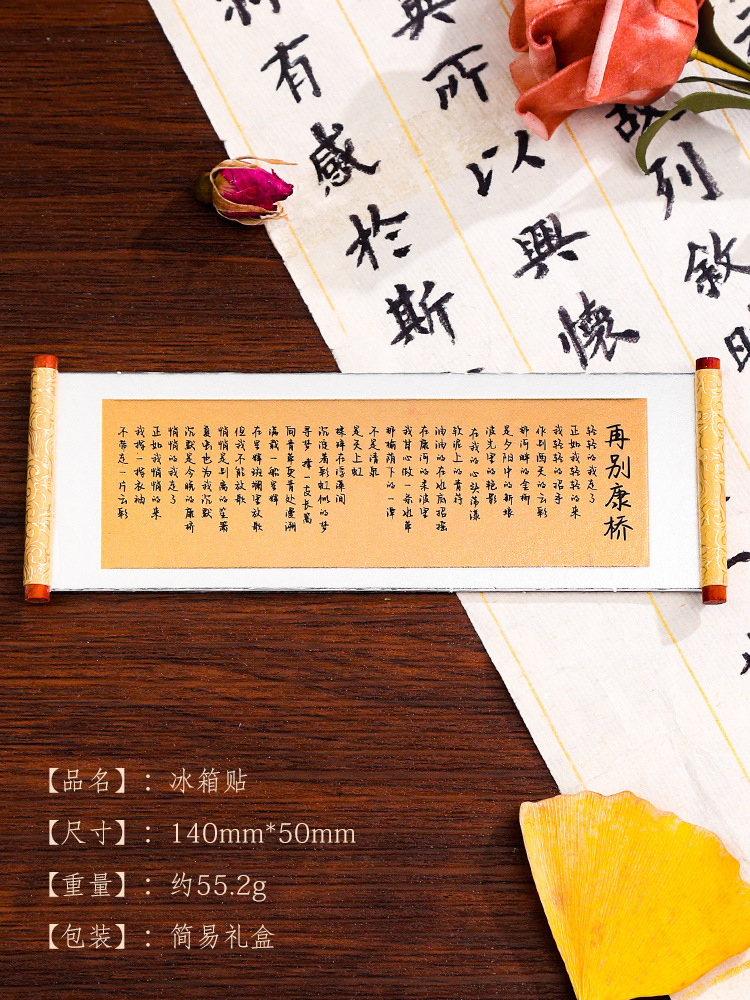 列敘
所以興懷
有感於斯
再别康桥
轻轻的我走了
正如我轻轻的来
我轻轻的招手
作别西天的云彩
那河畔的金柳
是夕阳中的新娘
波光里的艳影
在我的心头荡漾
软泥上的青荇
油油的在水底招摇
在康河的柔波里
我甘心做一条水草
那榆荫下的一潭
不是清泉
是天上虹
揉碎在浮藻间
沉淀着彩虹似的梦
寻梦 撑一支长篙
向青草更青处漫溯
满载一船星辉
在星辉斑斓里放歌
但我不能放歌
悄悄是别离的笙箫
夏虫也为我沉默
沉默是今晚的康桥
悄悄的我走了
正如我悄悄的来
我挥一挥衣袖
不带走一片云彩
【品名】：冰箱贴
【尺寸】：140mm*50mm
【重量】：约55.2g
【包装】：简易礼盒